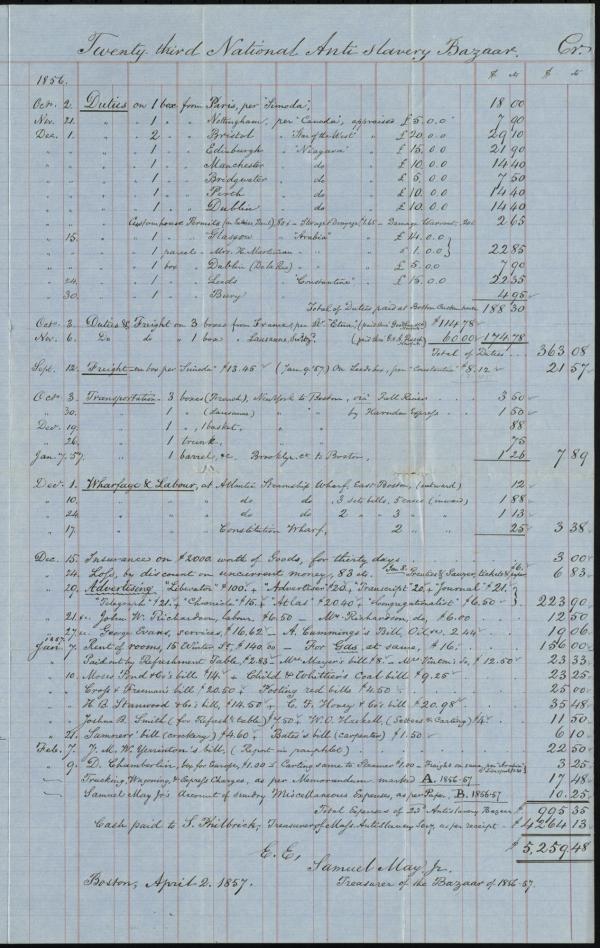 Twenty third National Anti Slavery Bazaar. Cr.
1856. $ cts $ cts
Oct. 2. Duties on 1 box from Paris, per "Simoda", 18 00
Nov. 21. " " 1 " " Nottingham, per "Canada", appraised £5.0.0 7 90
Dec. 1. " " 2 " " Bristol " "Son of the West" " £20.0.0 29 10
" " " 1 " " Edinburgh " "Niagara" " £15.0.0 21 90
" " " 1 " " Manchester " do " £10.0.0 14 40
" " " 1 " " Bridgwater " do " £5.0.0 7 50
" " " 1 " " Perth " do " £10.0.0 14 40
" " " 1 " " Dublin " do " £10.0.0 14 40
" " Custom house Permits 2 65
" 15. " " 1 " " Glasgow " "Arabia" " £14.0.0
" " " 1 parcel " Mrs. H. Martineau " " £1.0.0 } 22 85
" " " 1 box " Dublin " £5.0.0 7 90
" 24. " " 1 " " Leeds "Constantine" " £15.0.0 22 35
" 30. " " 1 " " Bury 4 95
Total of Duties paid at Boston Custom house 188 30
Oct. 3. Duties & Freight on 3 boxes from France, per St. "Etna", $114.78
Nov. 6. Do do " 1 box " Lausanne, 60.00 174.78
Total of Duties 363 08
Sept. 12. Freight on box per "Simoda" $13.45 (Jan 9. '57) On Leeds box, per "Constantine" $8.12 21 57
Oct. 3. Transportation - 3 boxes (French), New York to Boston, via Fall River 3 50
" 30. " 1 " (Lausanne) " " by Harnden Express 1 50
Dec. 19. " 1 ", 1 basket, " " 88
" 26. " 1 trunk, " " 75
Jan. 7. '57. " 1 barrel, &c. Brooklyn, Ct. to Boston. 1 26 7 89
Dec. 1. Wharfage & Labour, at Atlantic Steamship Wharf, East Boston, (outward) 12
" 10. " " do do, 3 sets bills, 5 cases (inward) 1 88
" 24 " " do do 2 " 3 " " 1 13
" 17. " " Constitution Wharf, 2 " " 25 3 38
Dec. 15. Insurance on $2000 worth of Goods, for thirty days 3 00
" 24. Loss, by discount on uncurrent money, 83 cts. Jan 8. Prentiss & Sawyer, tickets & paper $6. 6 83
" 29. Advertising. "Liberator" $100. + "Advertiser" $20., "Transcript" 20 + "Journal" $21.
"Telegraph" $21. + "Chronicle" $15. + "Atlas" $20.40 + "Congregationalist" $6.50 } 223 90
" 21. John W. Richardson, labour, $6.50 – Mrs. Richardson, do, $6.00 12 50
" 27. George Evans, services, $16.62 – A. Cummings's Bill, 2.44 19 06
1857. Jan. 7. Rent of rooms, 15 Winter St. $140.00 – For Gas at same, $16. 156 00
" Paid out by Refreshment Table, $2.83 – Mrs Mayer's bill $8 – do, $12.50 23 33
" 10. Moses Pond & Co's bill $14. + Child & Whittier's Coal bill $9.25 23 25
" Cross & Freeman's bill $20.50 – Posting red bills $4.50 25 00
" H. B. Stanwood & Co's bill, $14.50 + C. F. Hovey & Co's bill $20.98 35 48
" Joshua B. Smith (for Refresht table) $7.50. W. O. Haskell (Settees & Carting) $4 11 50
" 21. Sumners' bill (crockery) $4.60. Bates's bill (carpenter) $1.50 6 10
Feb. 7. J. M. W. Yerrinton's bill, (Report in pamphlet) 22 50
" 9. D. Chamberlin, box for Europe, $1.00 – Carting same to Steamer $1.00 – Freight on same, 3 25
Trucking, Wagoning, & Express Charges, as per Memorandum marked A. 1856-57 17 48
Samuel May Jr's Account of sundry Miscellaneous Expenses, as per Paper B. 1856-57 10 25
Total Expenses of 23d Antislavery Bazaar $ 995 35
Cash paid to S. Philbrick, Treasurer of Mass. Anti Slavery Socy, as per receipt $4264 13
$5,259 48
E. E.,
Samuel May Jr.
Boston, April 2. 1857. Treasurer of the Bazaar of 1856-57.